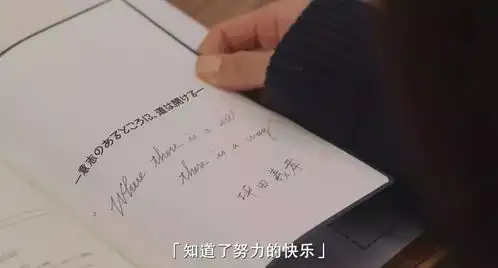 ―意志のあるところに、道は開ける―
"Where there is a will
there is a way"
坪田義孝
「知道了努力的快乐」